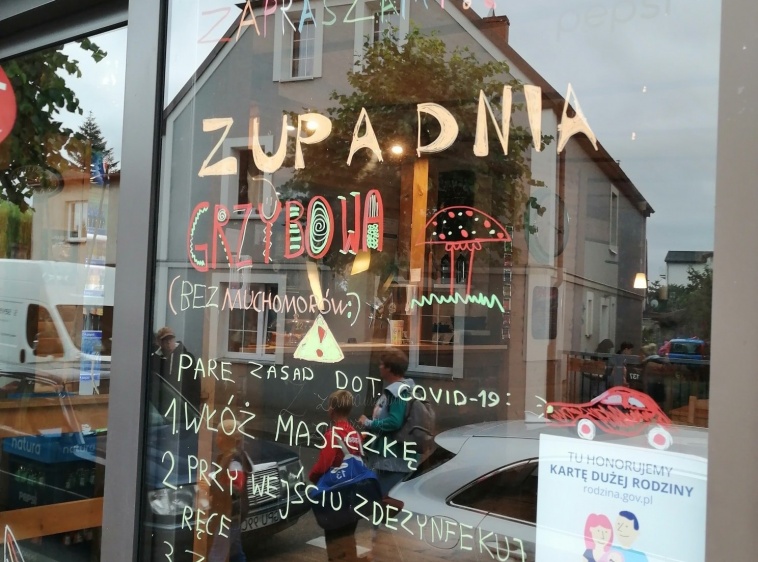 ZAPRASZAMY
pepsi
ZUPA DNIA
GRZYBOWA
(BEZ MUCHOMORÓW:)
!
PARE ZASAD DOT. COVID-19:
1. WŁÓŻ MASECZKĘ
2. PRZY WEJŚCIU ZDEZYNFEKUJ
RĘCE
3.
TU HONORUJEMY
KARTĘ DUŻEJ RODZINY
rodzina.gov.pl
natura
natura